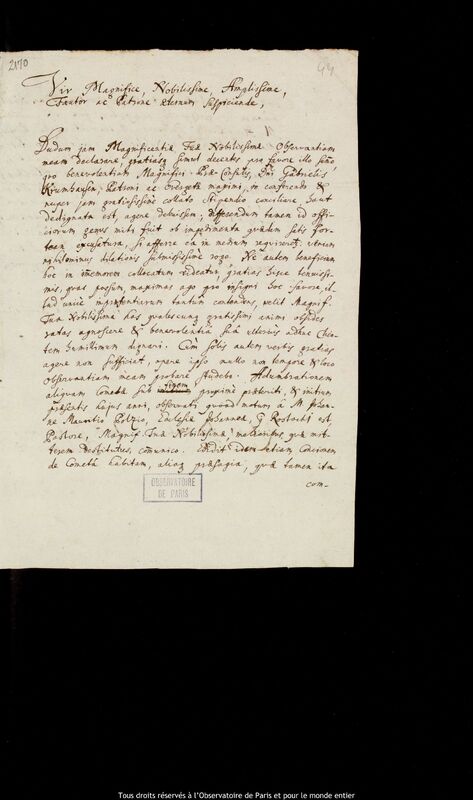 2170
Vir Magnifice, Nobilissime, Amplissime,
Fautor ac Patrone æternum suspiciende,
Dudum jam Magnificentiæ Tuæ Nobilissimæ Observantiam
meam declarare, gratiasq simul decentes pro favore illo
pro benevolentiam Magnifici Consulis, Dni Gabrielis
Patroni ac maximi, &
nuper jam gratiosissime collato Stipendio conciliare haut
dedignata est, agere debuissem; differendum tamen id offi-
ciorum genus mihi fuit ob impedimenta quædam satis for-
tean excusatura, si afferre ea in medium requireret; veniam
nihilominus dilationis submississime rogo. Ne autem beneficium
hoc in collocatum videatur, gratias hisce tenuissi-
mis, quas possum, maximas ago pro insigni hoc favore, il-
lud unice tantum contendens, velit Magnif.
Tua Nobilissima has qualescunq gratissimi animi obsides
ratas agnoscere & benevolentia sua ulterius adhuc Clien-
tem humillimum dignari. Cum solis autem verbis gratias
agere non sufficiat, opere ipso nullo non tempore & loco
observantiam meam probare studebo. Adumbrationem
aliquam Cometæ sub finem proxime præteriti, & initium
præsentis hujus anni, observati quoad motum à M. Johan-
ne Mauritio Ecclesiæ Johanneæ, q Rostochi est
Pastore, Magnif. Tuæ Nobilissimæ, communico. Edidit idem etiam Concionem
de Cometa habitam, aliaq præsagia, quæ tamen ita
com-
OBSERVATOIRE
DE PARIS
Tous droits réservés à l'Observatoire de Paris et pour le monde entier